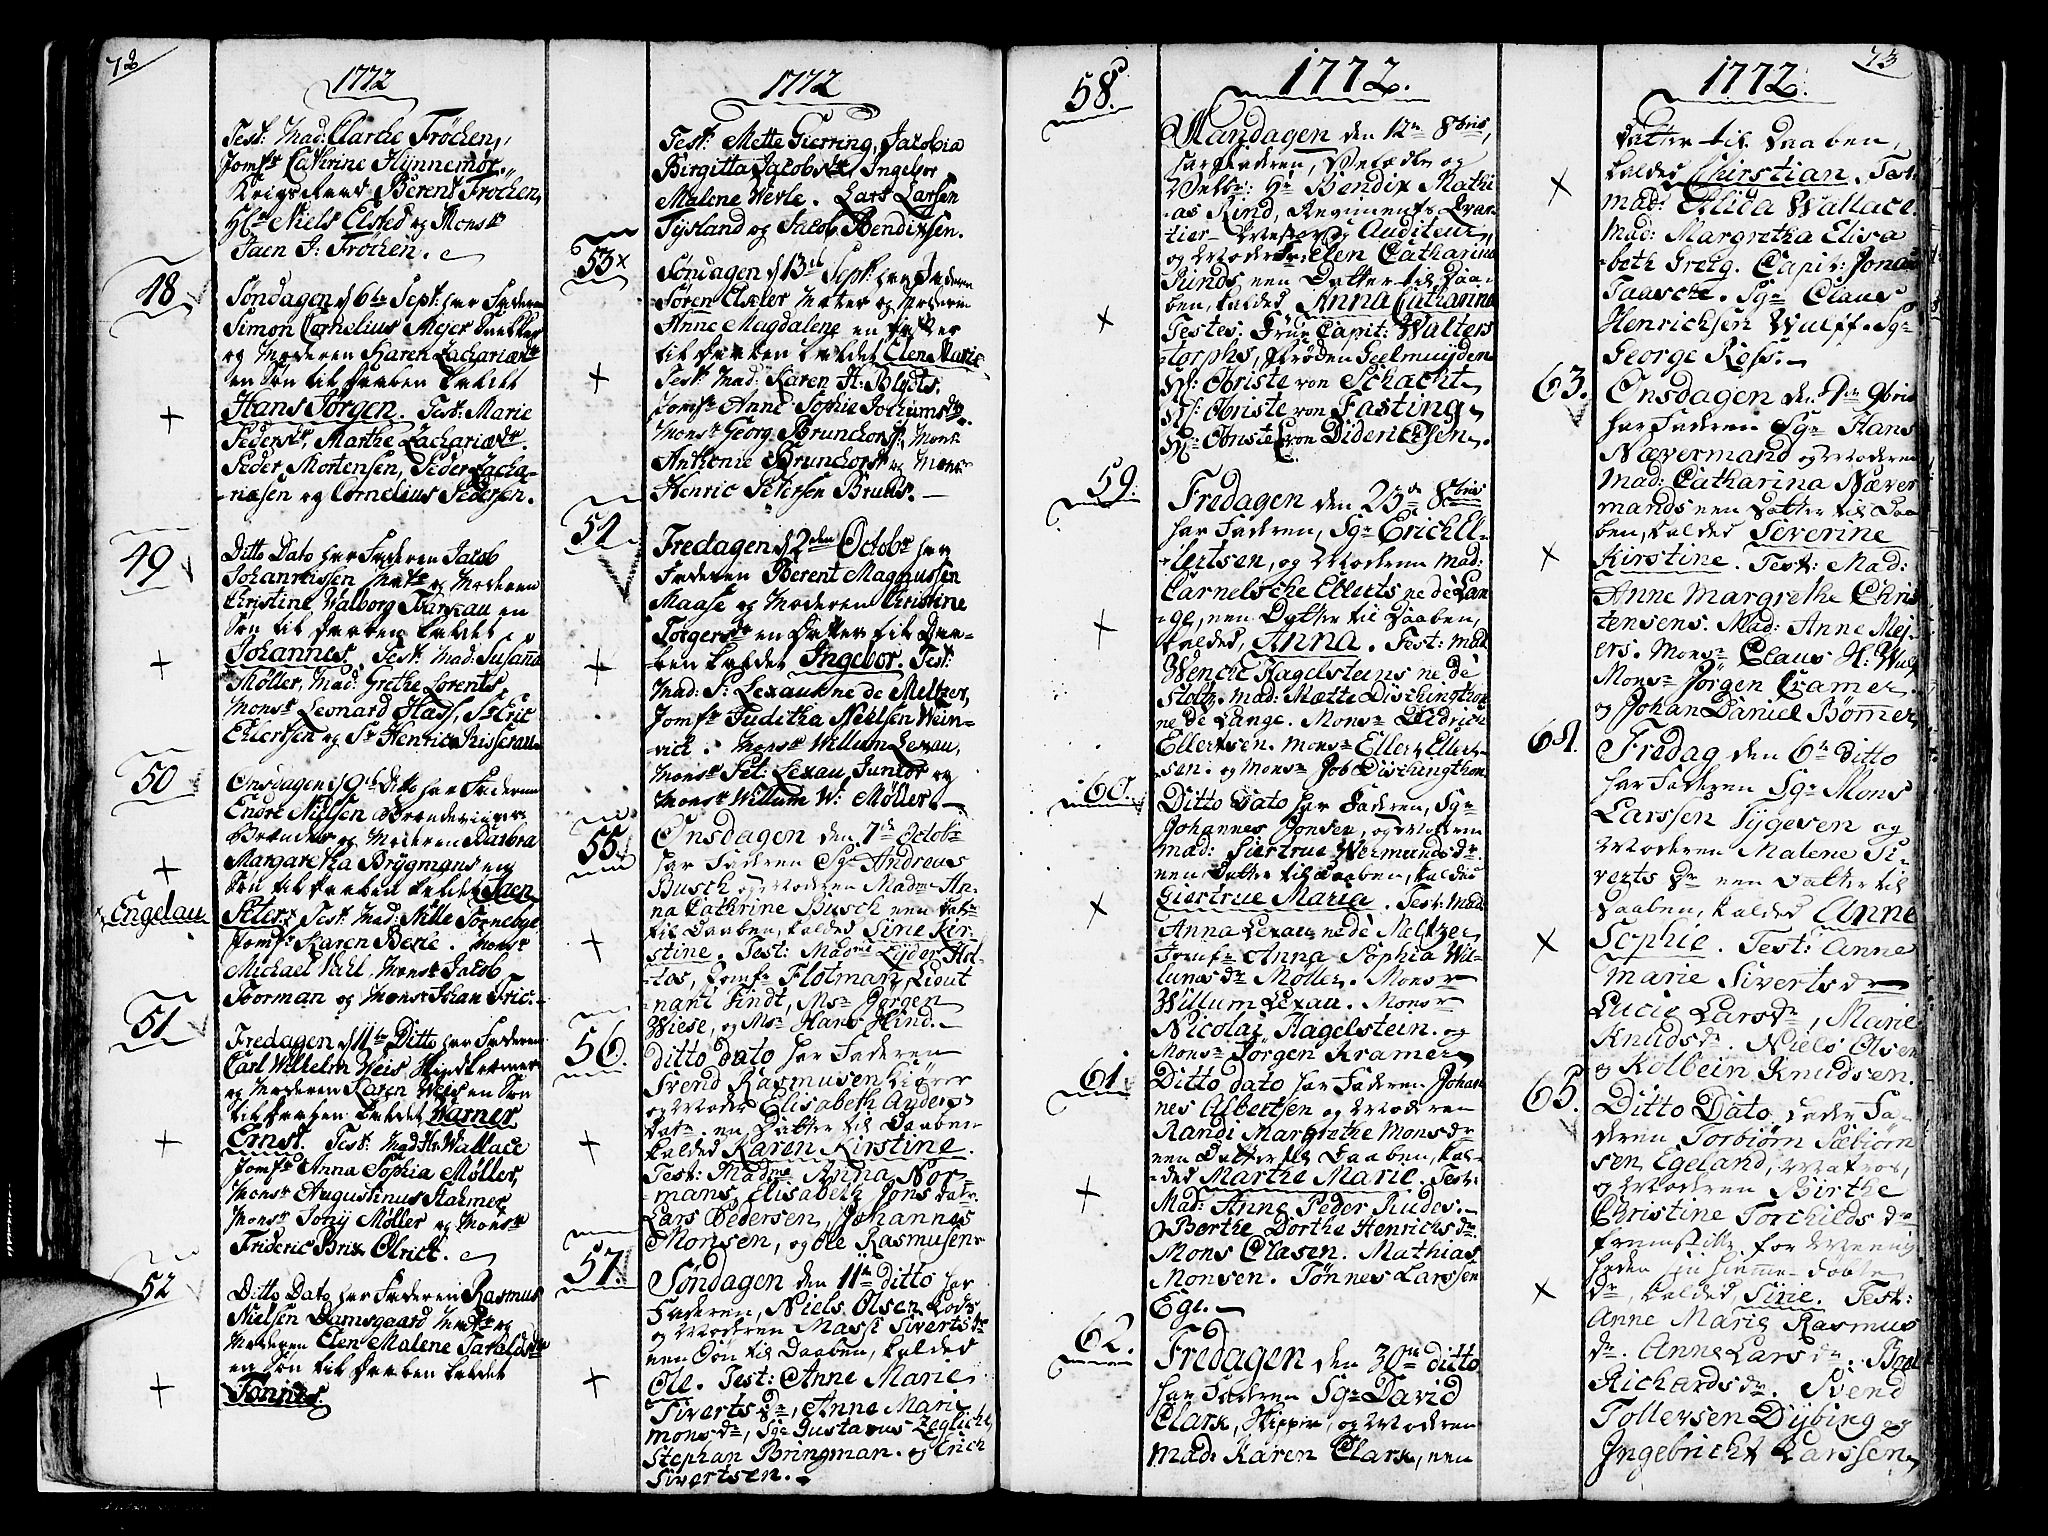 72
1772
Test: Mad: Clarche Fröchen,
Jomfr Cathrine Hynnemør,,
Krigsraad Berent Frochen,
Hr Niels Elsted og Monsr
Jaen J: Fröchen.
48
Søndagen d 6te Sept: har Faderen
Simon Cornelius Mejer
og Moderen Karen Zachariædtr
en Søn til Daaben kaldet
Hans Jørgen. Test: Marie
Pedersdr, Marthe Zachariædr
Peder Mortensen, Peder Zacha-
-riæsen og Cornelius Pedersen.
49
Ditto Dato har Faderen Jacob
Johannissen og Moderen
Christine Walborg en
Søn til Daaben kaldet
Johannes. Test: Mad: Susanna
Møller, Mad: Grethe Lorents,
Monsr Leonard Hass, Sr Eric
Ehlertsen og Sr Henric
50
Onsdagen d 9de Ditto har Faderen
Endre Nielsen
og Moderen Barbra
Margaretha Brygmans en
Søn til Daaben kaldet Jaen
Engelau
Peter. Test: Mad: Nille
Jomfr Karen Berle. Monsr
Michael Vahl, Monsr Jacob
Foorman og Monsr Johan Fric:
51
Fredagen d 11te Ditto har Faderen
Carl Wilhelm Weis
og Moderen Karen Weis en Søn
til Daaben kaldet Warner
Ernst. Test: Mad: H: Wallace
Jomfr Anna Sophia Møller,
Monsr Augustinus
Monsr Tonij Møller og Monsr
Frideric Brix Olrick.
52
Ditto Dato har Faderen Rasmus
Nielsen Damsgaard og
Moderen Elen Malene Taraldsdr
en Søn til Daaben kaldet
Tønnes.
1772
Test: Mette Gierring, Jacobia
Birgitta Jacobsdr, Ingebor
Malene Werle. Lars Larsen
Tysland og Jacob Bendixsen.
53
Søndagen d 13de Sept: har Faderen
Søren og Moderen
Anne Magdalene en Datter
til Daaben kaldet Elen Marie
Test: Mad: Karen H: Blydt,
Jomfr Anne Sophie Jochumsdr
Monsr Georg Brunchorst, Monsr
Anthonie Brunchorst og Monsr
Henric Petersen Bruns.
54
Fredagen d 2den Octobr har
Faderen Berent Magnussen
Maase og Moderen Christine
Torgersdr en Datter til Daa-
-ben kaldet Ingebor. Test:
Mad: S: Lexau ne de Meltzer,
Jomfr Juditha Nielsen Wein-
vick. Monsr Willum Lexau,
Monsr Pet: Lexau Junior og
Monsr Willum W: Møller.
55
Onsdagen den 7de Octobr
har Faderen Sgr Andreas
Busch og Moderen Madme An-
na Cathrine Busch een Datr
til Daaben, kaldes Sine Kir-
stine. Test: Madme Lyder Hol-
-tas, Jomfr Flotman, Lieut
nant Findt, Msr Jørgen
Wiese, og Msr Hans Hind.
56.
Ditto Dato har Faderen
Svend Rasmusen
og Moder Elisabeth Anders
Datr en Datter til Daaben
kaldes Karen Kirstine.
Test: Madme Anna Nor-
mans, Elisabeth Jons Datr
Lars Pedersen, Johannes
Monsen, og Ole Rasmusen
57.
Søndagen den 11te ditto har
Faderen, Niels Olsen Lods
og Moderen Massi Sivertsdr
een Søn til Daaben, kaldes
Ole. Test: Anne Marie
Sivertsdr, Anne Marie
Monsdr, Sgr Gustavus Zeglich,
Stephan Bringman. og Erich
Sivertsen.
58.
1772.
Mandagen den 12te 8bris,
har Faderen, Velædle og
Velbr: Hr Bendix Mathi
-as Rind, Regiments Qvar-
tier- Mester og Auditeur,
og Moder Fr: Elen Catharina
Rinds een Datter til Daa-
ben, kaldes Anna Catharina
Testes: Frue Capit: Walters
-torphs, Frøden Geelmuijden
Hr: Obriste von Schacht
Hr: Obriste von Fasting
Hr Obriste von Diderichsen.
59.
Fredagen den 23de 8bris
har Faderen, Sgr Erich El-
-lertsen, og Moderen Mad:
Carnelsche Ellerts ne dè Lan
-ge, een Datter til Daaben,
kaldes, Anna. Test: Mad
Wenche Hagelsteins ne dè
Stoltz. Mad: Mætte Dischingthon
ne de Lange. Monsr Didrich
Ellertsen. Monsr Ellert Eller-
sen. og Monsr Job Dischingthon
60.
Ditto Dato har Faderen, Sgr
Johannes Jonsen, og Moderen
Mad: Giertrue Wermundsdr.
een Datter til Daaben, kaldes
Giertrue Maria. Test: Mad
Anna Lexau ne dè Meltzer
Jomfr Anna Sophia Wil-
lumsdr Møller. Monsr
Willum Lexau. Monsr
Nicolaj Hagelstein. og
Monsr Jørgen Kramer
61.
Ditto Dato har Faderen Johan
nes Albertsen og Moderen
Randi Margrethe Monsdr
een Datter til Daaben, kal-
-des Marthe Marie. Test:
Mad: Anne Peder Rudes.
Berthe Dorthe Henrichsdr
Mons Clasen. Mathias
Monsen. Tønnes Larssen
Ege.
62.
Fredagen den 30te ditto
har Faderen Sgr David
Clark, Skipper, og Moderen
Mad: Karen Clark, een
73
1772.
Datter til Daaben,
kaldes Christian. Test:
Mad: Alida Wallace.
Mad: Margretha Elisa
-beth Greig. Capit: Jonas
Taasche. Sgr Claus
Henrichsen Wulff. Sgr
George Ross.
63.
Onsdagen den 4de 9bris
har Faderen Sgr Hans
Nævermand og Moderen
Mad: Catharina Næver
mands een Datter til Daa
ben, kaldes Severine
Kirstine. Test: Mad:
Anne Margrethe Chris
tensens. Mad: Anne Mej-
ers. Monsr Claus H: Wulf
Monsr Jørgen Cramer.
og Johan Daniel Bømer
64.
Fredag den 6te ditto
har Faderen Sgr Mons
Larssen Tygesen og
Moderen Malene Si-
vertsdr een Datter til
Daaben, kaldes Anne
Sophie. Test: Anne
Marie Sivertsdr
Lucie Larsdr, Marie
Knudsdr. Niels Olsen
og Kolbein Knudsen.
65.
Ditto Dato, lader Fa-
deren Torbiørn Sæbiørn
sen Egeland, Matros,
og Moderen Birthe
Christine Torchildsdr
fremstille for Menig
heden sin hiemme-døbte
dr, kaldes Sine. Test:
Anne Marie Rasmus
dr. Anne Larsdr.
Richardsdr. Svend
Tollersen Dybing og
Ingebricht Larssen